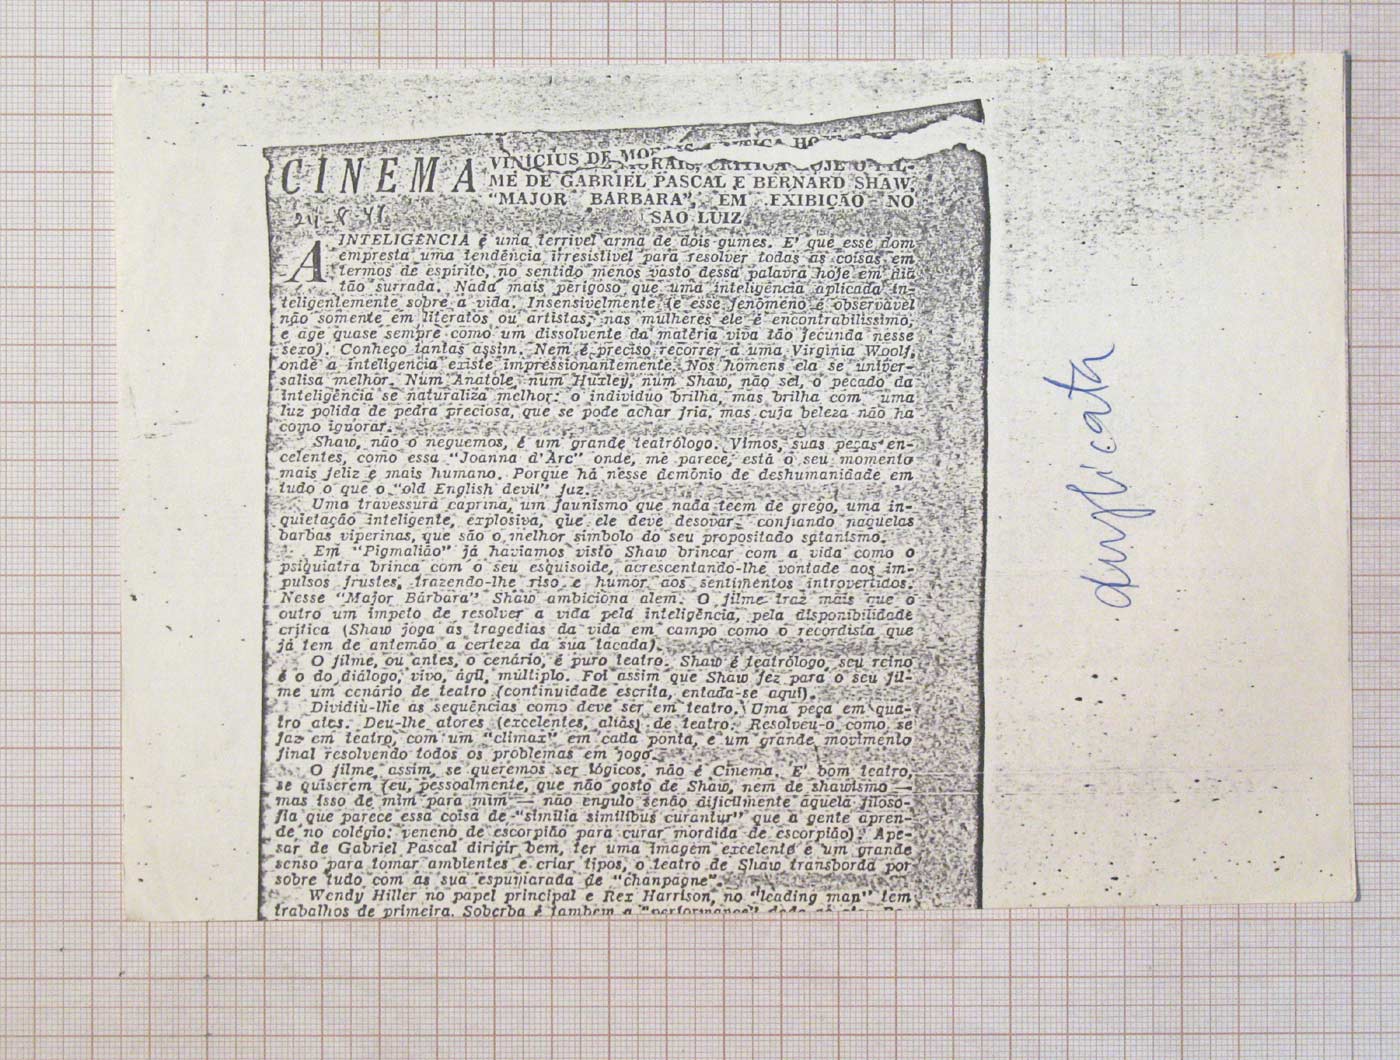 CINEMA
VINICIUS DE MORAIS, CRITICA HOJE O FIL-
ME DE GABRIEL PASCAL E BERNARD SHAW,
"MAJOR BARBARA", EM EXIBIÇÃO NO
SAO LUIZ
24-8-41
A INTELIGÊNCIA é uma terrivel arma de dois gumes. E' que esse dom
empresta uma tendência irresistivel para resolver todas as coisas em
termos de espirito, no sentido menos vasto dessa palavra hoje em dia
tão surrada. Nada mais perigoso que uma inteligência aplicada in-
teligentemente sobre a vida. Insensivelmente (e esse fenômeno é observavel
não somente em literatos ou artistas, nas mulheres ele é encontrabilissimo,
e age quase sempre como um dissolvente da matéria viva tão fecunda nesse
sexo). Conheço tantas assim. Nem é preciso recorrer a uma Virginia Woolf,
onde a inteligencia existe impressionantemente. Nos homens ela se univer-
salisa melhor. Num Anatole, num Huxley, num Shaw, não sei, o pecado da
inteligência se naturaliza melhor: o individuo brilha, mas brilha com uma
luz polida de pedra preciosa, que se pode achar fria, mas cuja beleza não ha
como ignorar.
Shaw, não o neguemos, é um grande teatrólogo. Vimos, suas peças en-
celentes, como essa "Joanna d'Arc" onde, me parece, está o seu momento
mais feliz e mais humano. Porque há nesse demônio de deshumanidade em
tudo o que o "old English devil" faz.
Uma travessura caprina, um faunismo que nada teem de grego, uma in-
quietação inteligente, explosiva, que ele deve desovar confiando naquelas
barbas viperinas, que são o melhor simbolo do seu propositado satanismo.
Em "Pigmalião" já haviamos visto Shaw brincar com a vida como o
psiquiatra brinca com o seu esquisoide, acrescentando-lhe vontade aos im-
pulsos frustes, trazendo-lhe riso e humor aos sentimentos introvertidos.
Nesse "Major Bárbara" Shaw ambiciona alem. O filme traz mais que o
outro um impeto de resolver a vida pela inteligência, pela disponibilidade
critica (Shaw joga as tragedias da vida em campo como o recordista que
já tem de antemão a certeza da sua tacada).
O filme, ou antes, o cenário, é puro teatro. Shaw é teatrólogo, seu reino
é o do diálogo, vivo, ágil, múltiplo. Foi assim que Shaw fez para o seu fil-
me um cenário de teatro (continuidade escrita, entada-se aqui).
Dividiu-lhe as sequências como deve ser em teatro. Uma peça em qua-
tro atos. Deu-lhe atores (excelentes, aliás) de teatro. Resolveu-o como se
faz em teatro, com um "climax" em cada ponta, e um grande movimento
final resolvendo todos os problemas em jogo.
O filme, assim, se queremos ser lógicos, não é Cinema. E' bom teatro,
se quiserem (eu, pessoalmente, que não gosto de Shaw, nem de shawismo —
mas isso de mim para mim — não engulo senão dificilmente aquela filoso-
fia que parece essa coisa de "similia similibus curantur" que a gente apren-
de no colégio: veneno de escorpião para curar mordida de escorpião). Ape-
sar de Gabriel Pascal dirigir bem, ter uma imagem excelente e um grande
senso para tomar ambientes e criar tipos, o teatro de Shaw transborda por
sobre tudo com as sua espumarada de "chanpagne".
Wendy Hiller no papel principal e Rex Harrison, no "leading man" tem
trabalhos de primeira. Soberba é tambem a "performance"
duplicata